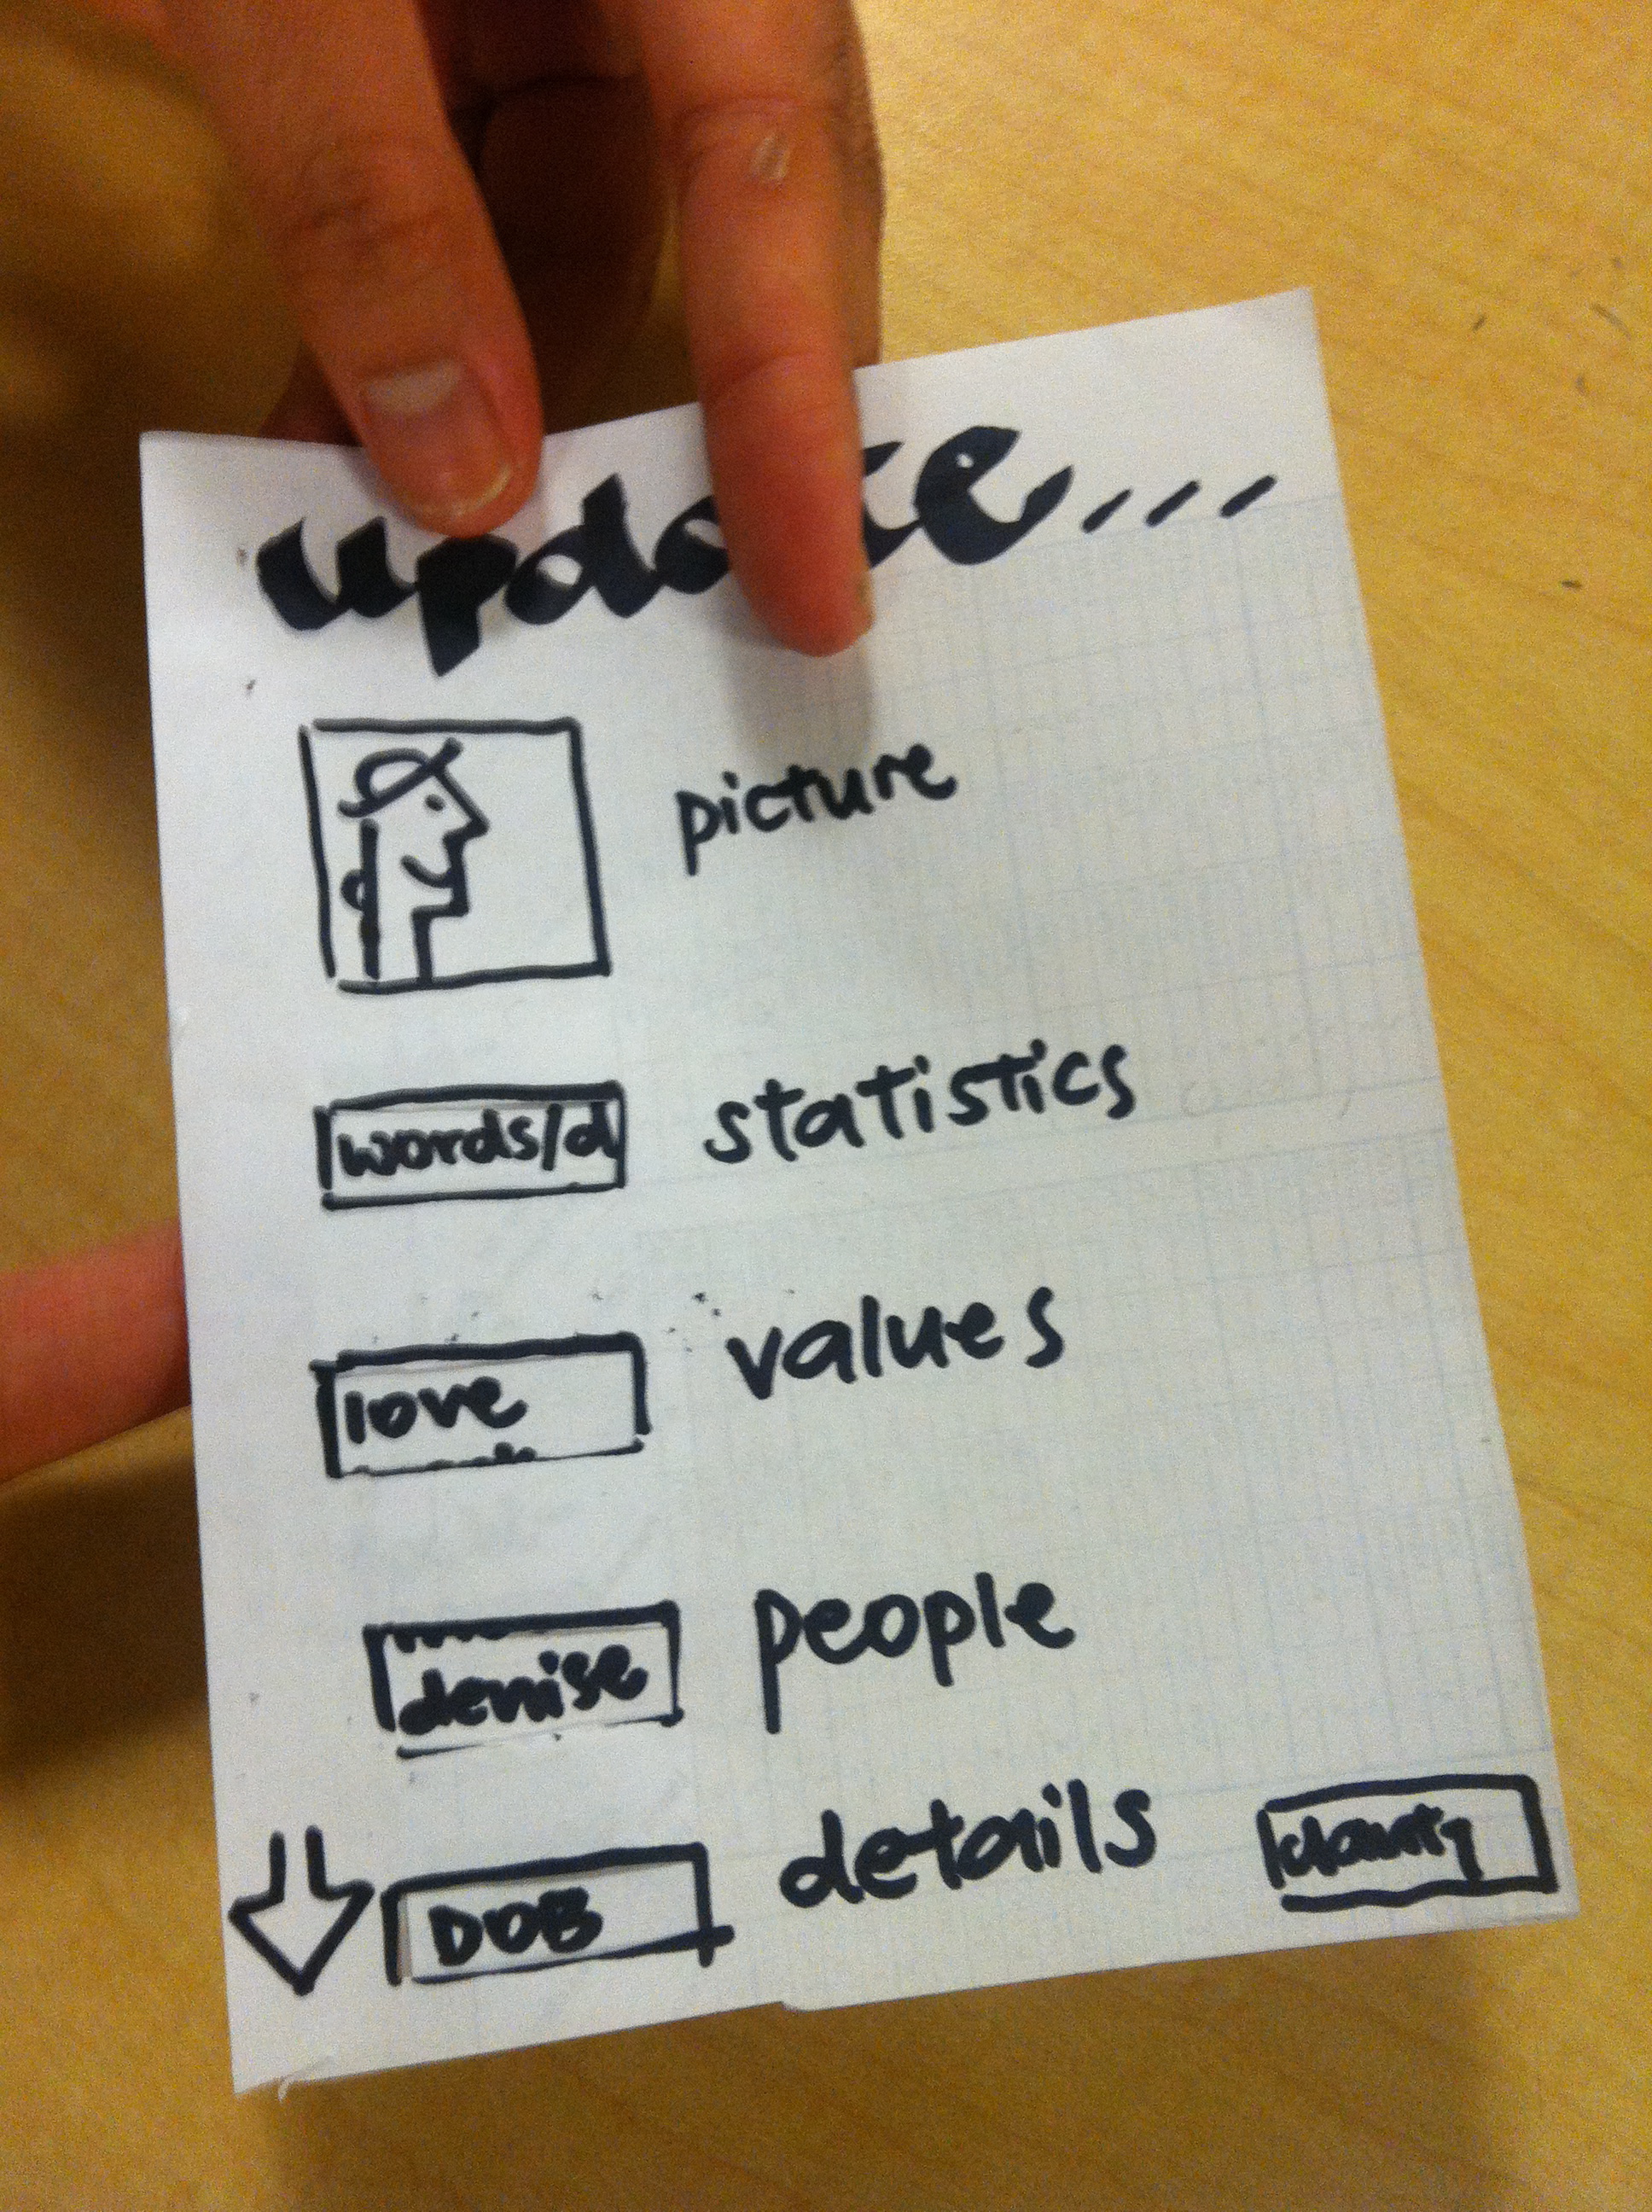 update...
picture
words/d statistics
love values
denise people
DOB details